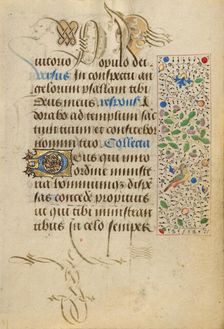 iutorio populo dei
Versus In conspectu an
gelorum psallam tibi
Deus meus respons A
dorabo ad templum sanc
tum tuum et confitebor
Collecta
Deus qui miro
ordine minist
hominumq dispen
sas concede propitius
ut a qui tibi ministran
tibus in celo semper